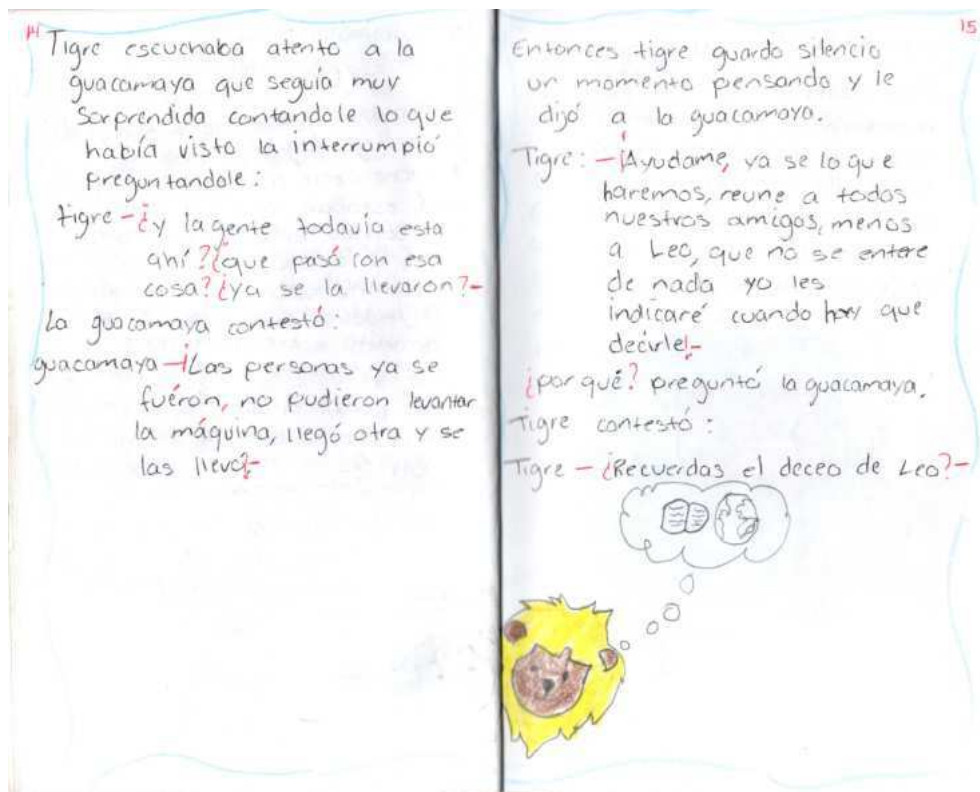 14
Tigre escuchaba atento a la
guacamaya que seguía muy
sorprendida contandole lo que
había visto la interrumpió
preguntandole:
tigre -¿y la gente todavía esta
ahí? ¿que pasó con esa
cosa? ¿ya se la llevaron?-
La guacamaya contestó:
guacamaya -¡Las personas ya se
fuéron, no pudieron levantar
la máquina, llegó otra y se
las llevó!-
15
Entonces tigre guardo silencio
un momento pensando y le
dijó a la guacamaya.
Tigre: -¡Ayudame, ya se lo que
haremos, reune a todos
nuestros amigos, menos
a Leo, que no se entere
de nada yo les
indicaré cuando hay que
decirle!-
¿por qué? preguntó la guacamaya.
Tigre contestó:
Tigre - ¿Recuerdas el deceo de Leo?-